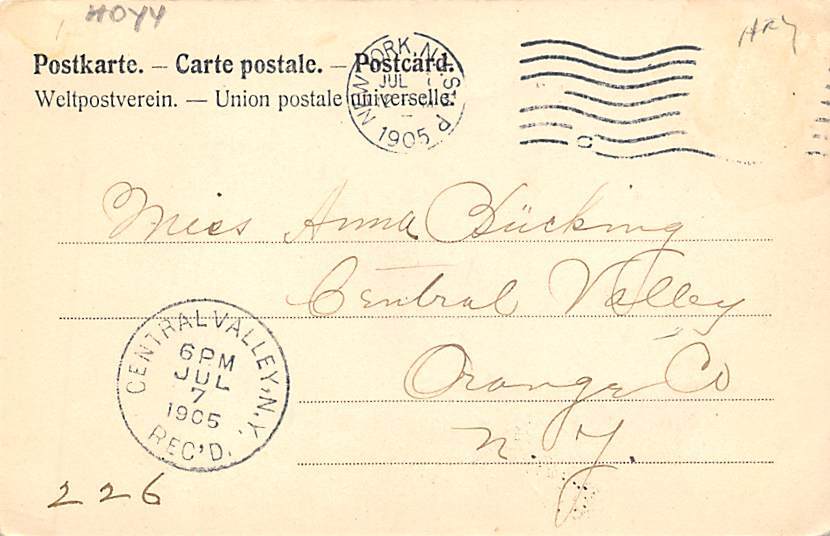 HOYY
Postkarte. – Carte postale. – Postcard.
Weltpostverein. — Union postale universelle.
NEW YORK, N.Y. STA. P
JUL
1905
Miss Anna Bücking
Central Valley
Orange Co
N. Y.
CENTRAL VALLEY, N.Y.
6 PM
JUL
7
1905
REC'D.
226